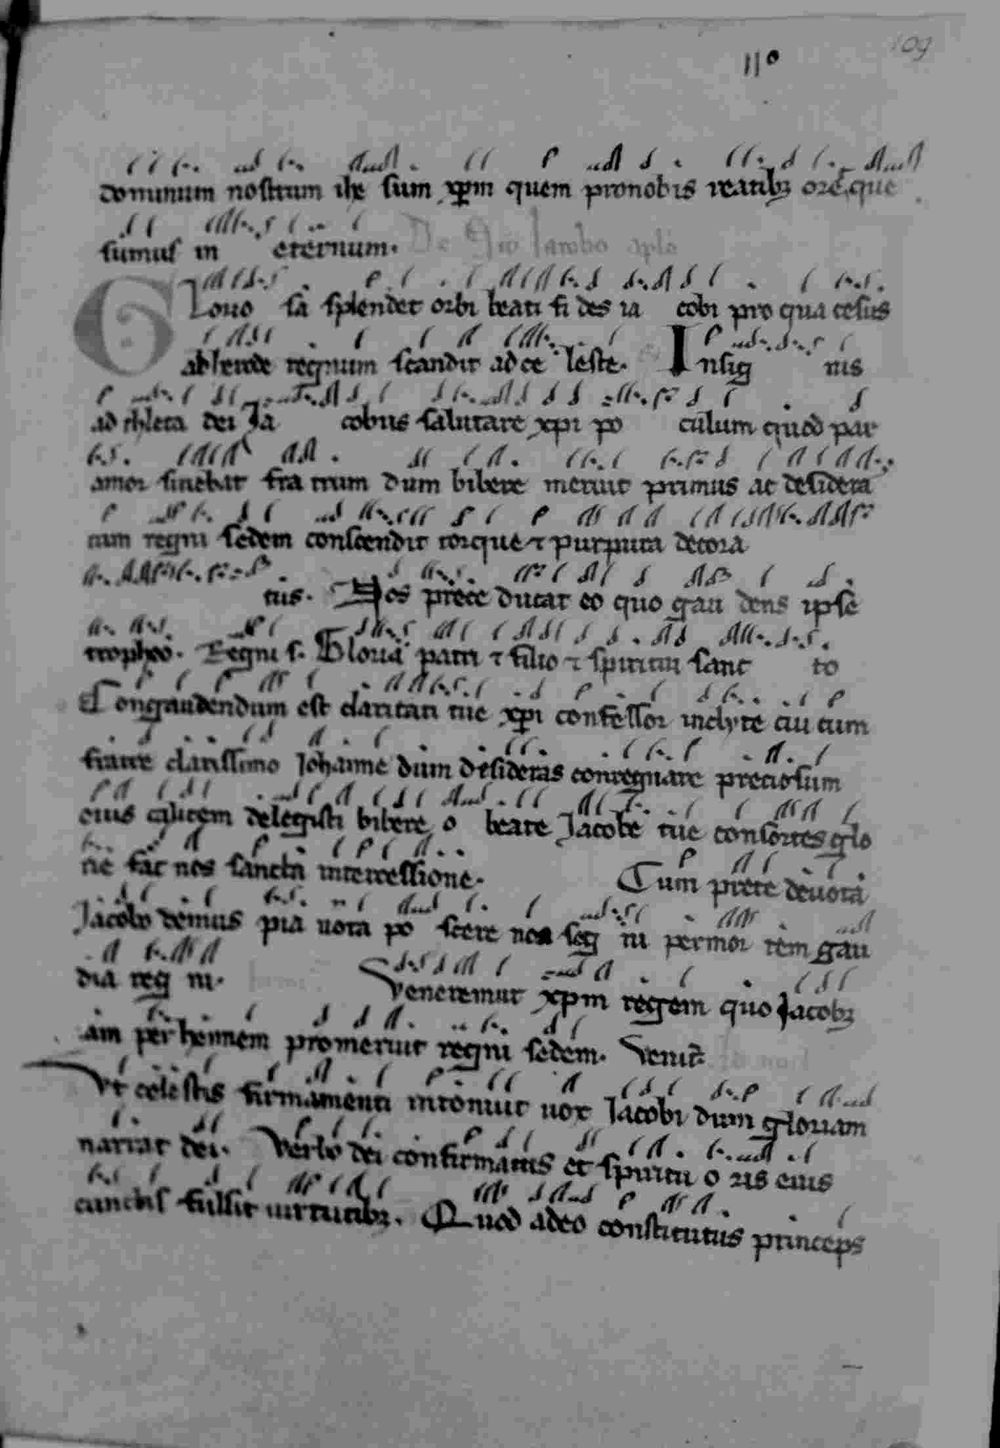 109
11º
dominum nostrum ihe sum xpm quem pro nobis reatibꝫ
sumus in eternum. De Sco Jacobo aplo
Gloriosa splendet orbi beati fides ia cobi pro qua cesus
ab herode regnum scandit ad ce leste. Insig nis
ad thleta dei Ja cobus salutare xpi po culum quod par
amor sinebat fra trum dum bibere meruit primus ac desidera
tum regni sedem conscendit torque ⁊ purpura decora
tus. Nos prece ducat eo quo gau dens ipse
tropheo. Regni s. Gloria patri ⁊ filio ⁊ spiritui sanc to
Congaudendum est claritati tue xpi confessor inclyte cui cum
fratre clarissimo Johanne dum desideras conregnare preciosum
eius calicem delegisti bibere o beate Jacobe tue consortes glo
rie fac nos sancta intercessione. Cum prece devota
Jacobo demus pia uota po scere non seg ni per mor tem gau
dia reg ni. Veneremur xpm regem quo Jacobꝫ
am per hennem promeruit regni sedem. Venit
Vt celestis firmamenti intonuit uox Jacobi dum gloriam
narrat dei. Verbo dei confirmatus et spiritu o ris eius
cunctis fulsit uirtutibꝫ. Quod adeo constitutus princeps